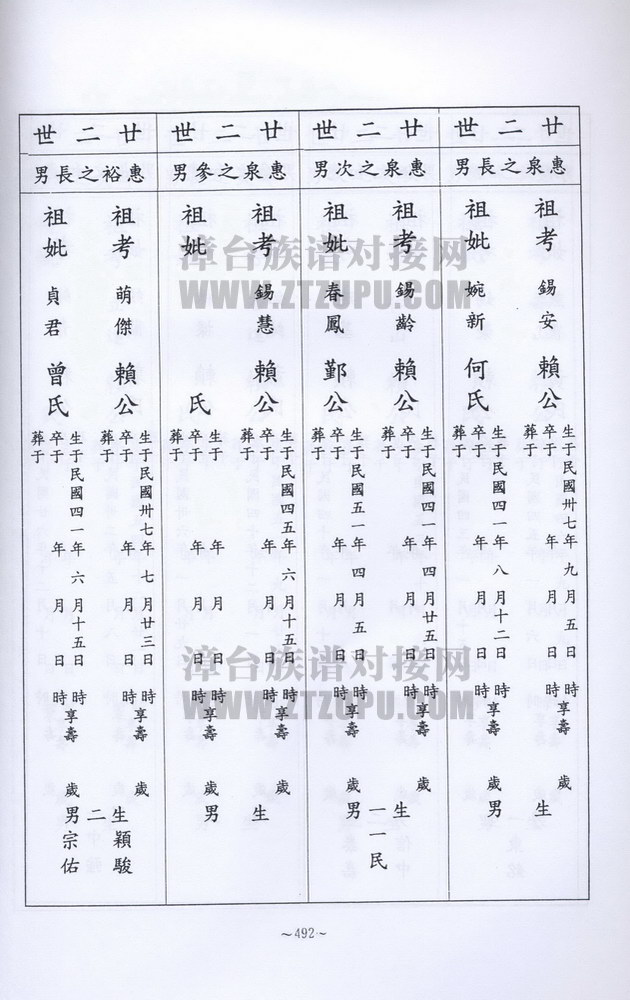 廿二世
惠泉之長男
祖考 錫安 賴公
生于民國卅七年九月五日時
卒于 年 月 日 時享壽 歲
葬于
祖妣 婉新 何氏
生于民國四一年八月十二日時
卒于 年 月 日 時享壽 歲
葬于
生 男
廿二世
惠泉之次男
祖考 錫齡 賴公
生于民國四一年四月廿五日時
卒于 年 月 日 時享壽 歲
葬于
祖妣 春鳳 鄞公
生于民國五一年四月五日時
卒于 年 月 日 時享壽 歲
葬于
生一一男 民
廿二世
惠泉之參男
祖考 錫慧 賴公
生于民國四五年六月十五日時
卒于 年 月 日 時享壽 歲
葬于
祖妣 氏
生于 年 月 日 時
卒于 年 月 日 時享壽 歲
葬于
生 男
廿二世
惠裕之長男
祖考 萌傑 賴公
生于民國卅七年七月廿三日時
卒于 年 月 日 時享壽 歲
葬于
祖妣 貞君 曾氏
生于民國四一年六月十五日時
卒于 年 月 日 時享壽 歲
葬于
生二男 穎駿
宗佑
~492~
漳台族谱对接网
WWW.ZTZUPU.COM
漳台族谱对接网
WWW.ZTZUPU.COM